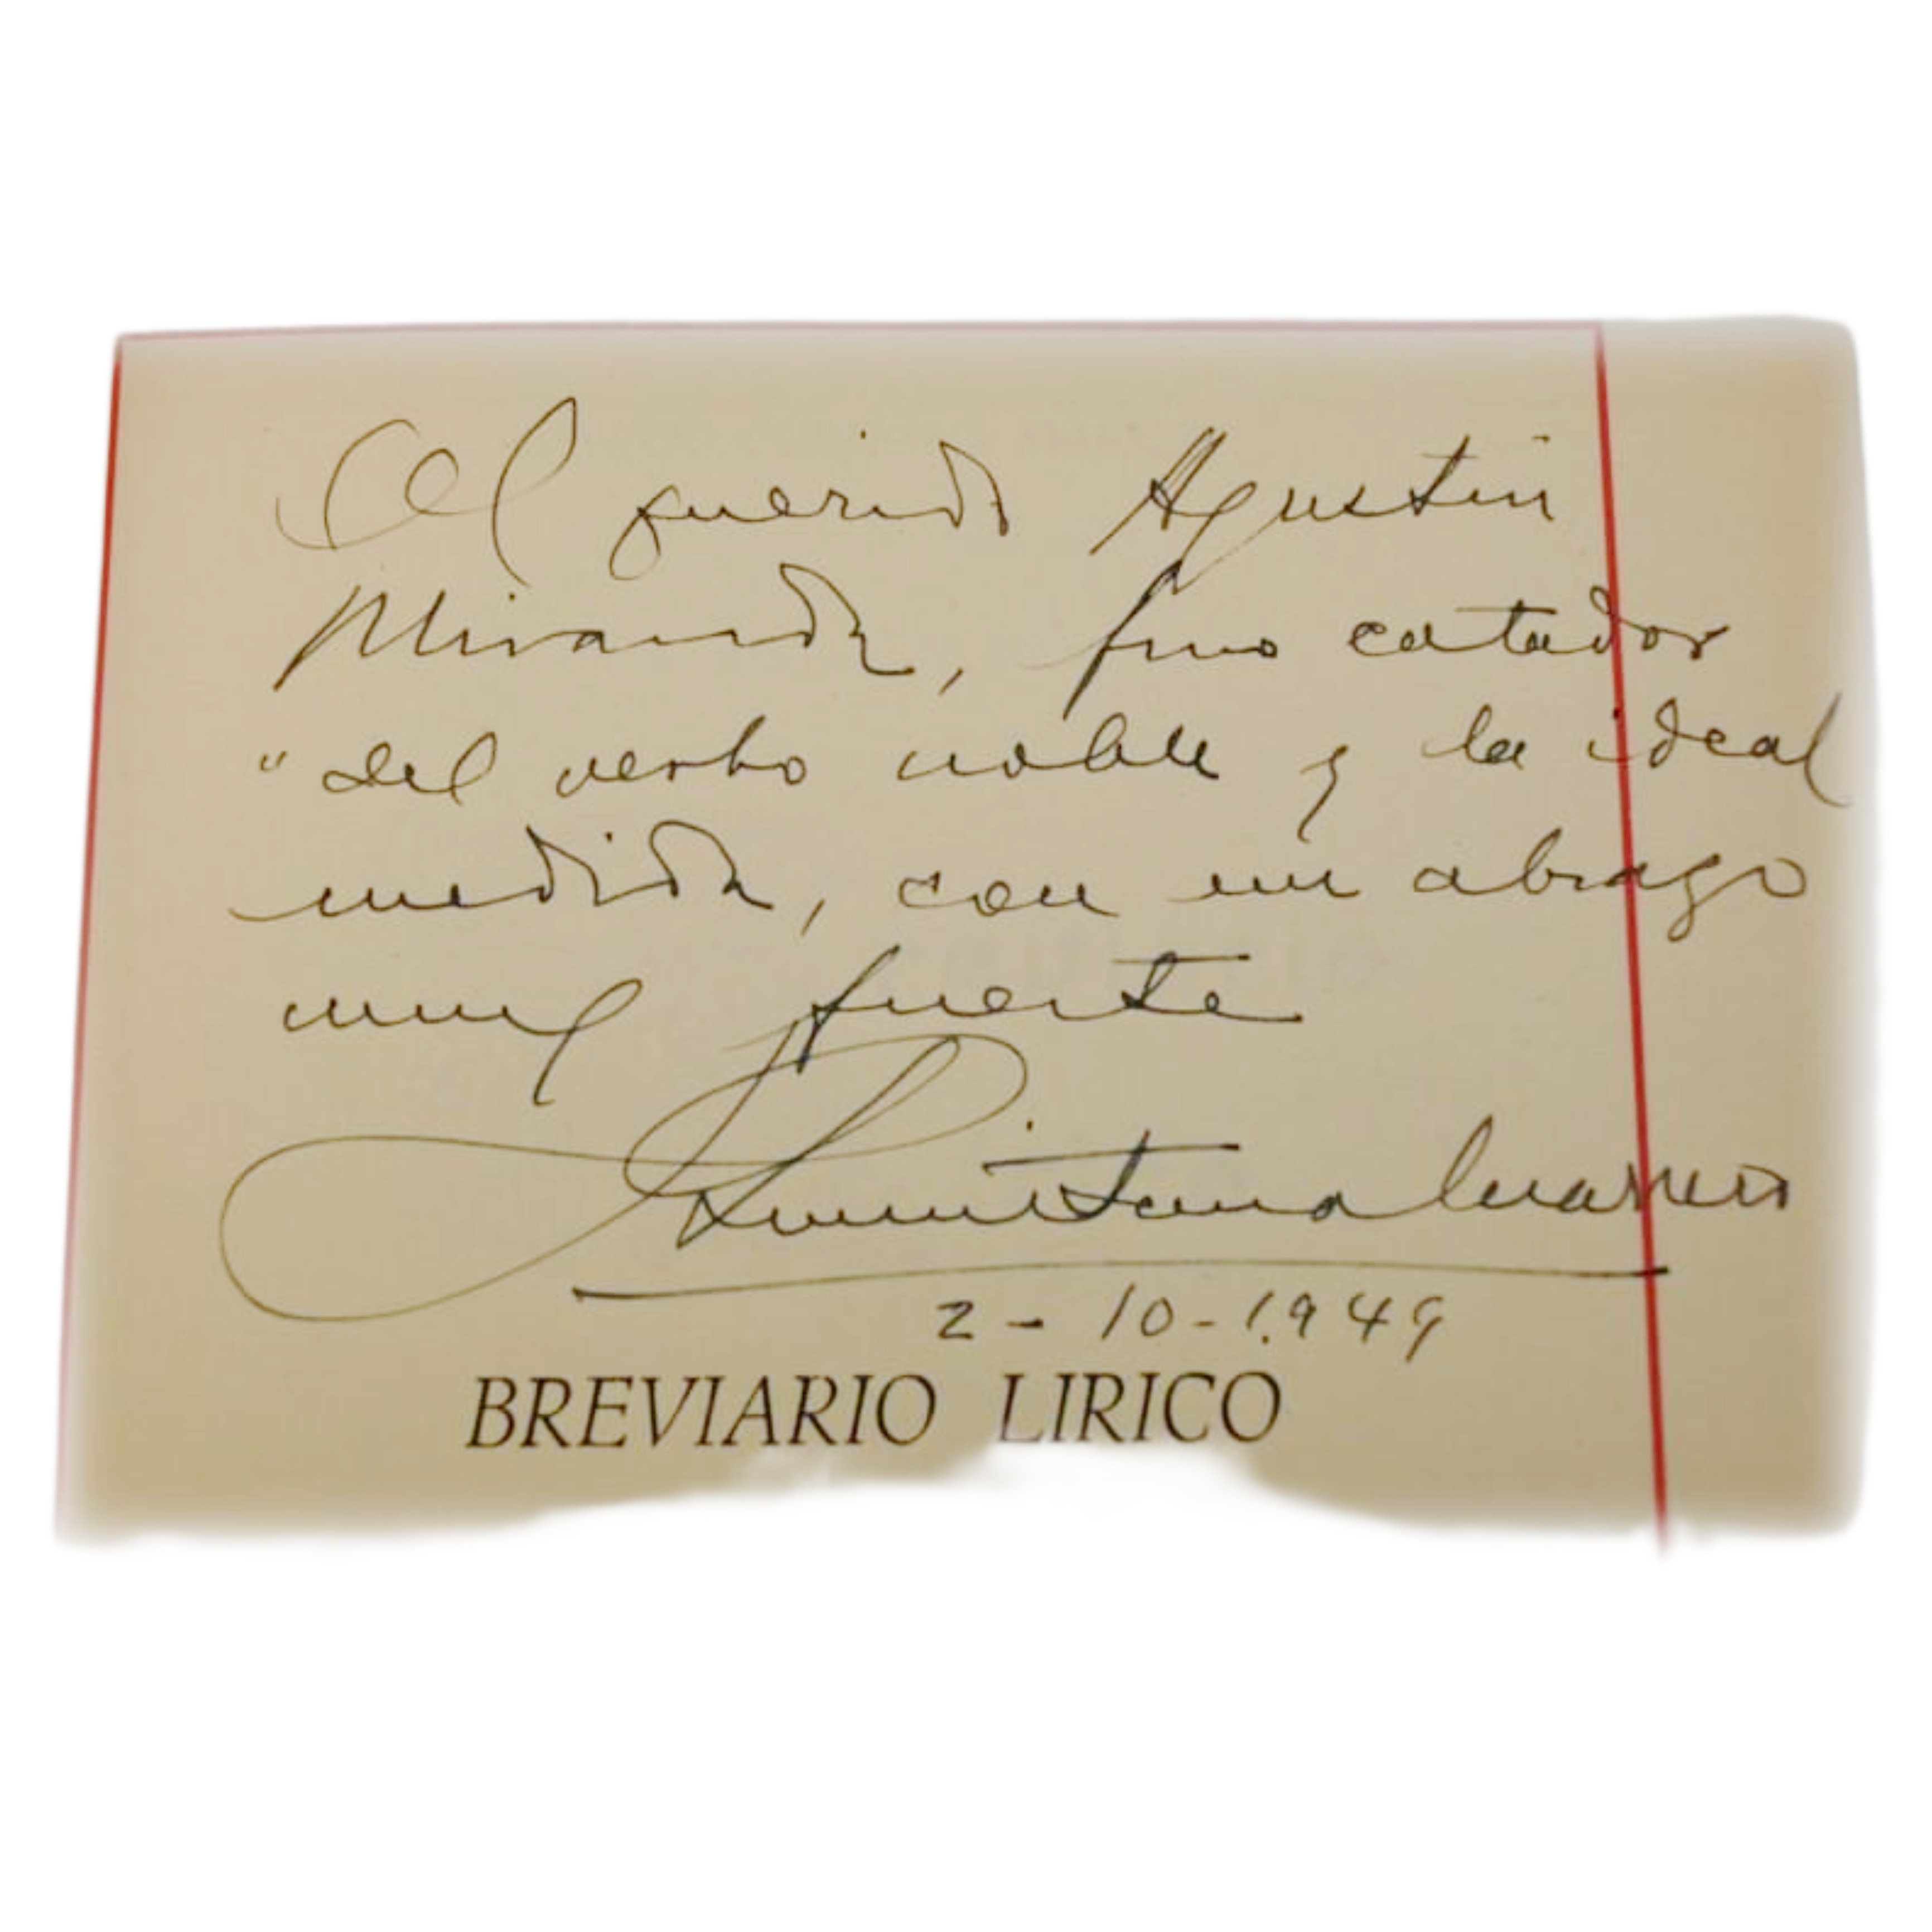 Al querido Agustin
Miranda, fino catador
"del verbo noble y la ideal
medida, con un abrazo
muy fuerte
2-10-1.949
BREVIARIO LIRICO